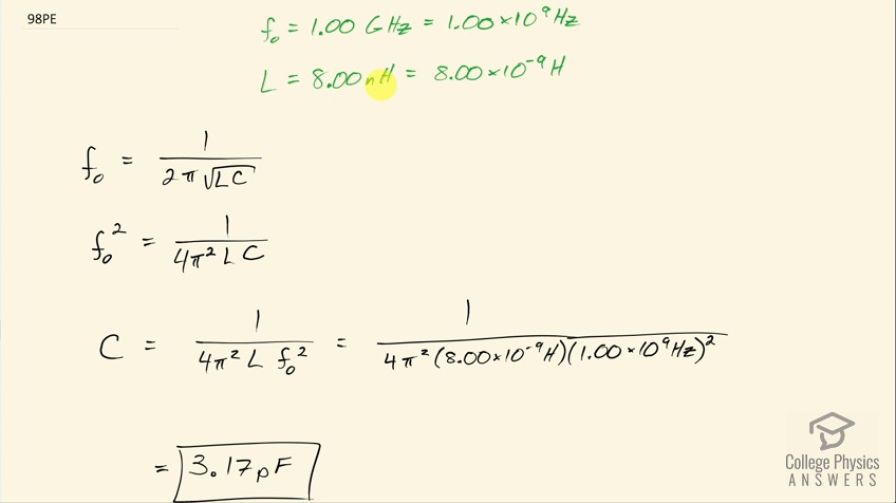 98PE
f₀ = 1.00 GHz = 1.00×10⁹ Hz
L = 8.00 nH = 8.00×10⁻⁹ H
f₀ = 1 / (2π √(LC))
f₀² = 1 / (4π² L C)
C = 1 / (4π² L f₀²) = 1 / (4π² (8.00×10⁻⁹ H)(1.00×10⁹ Hz)²)
= 3.17 pF
College Physics
ANSWERS